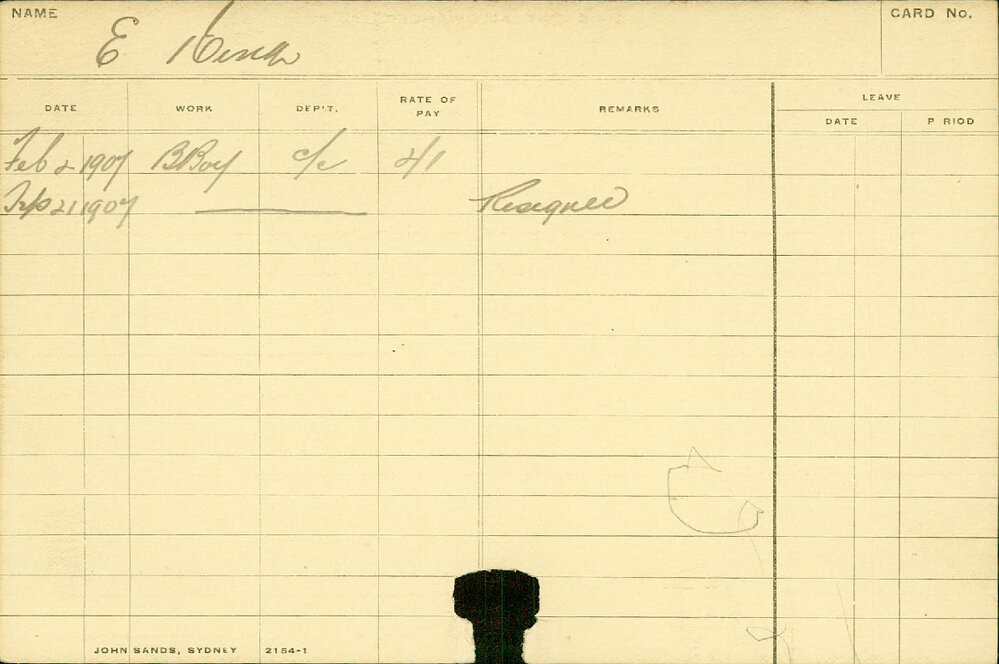 NAME
E King
CARD No.
DATE WORK DEP'T. RATE OF PAY REMARKS LEAVE
DATE P RIOD
Feb 2 1907 BBoy c/c 4/1
Sep 21 1907 Resigned
JOHN SANDS, SYDNEY 2154-1